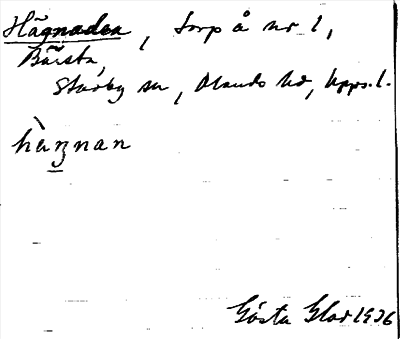 Hägnaden, torp å nr 1,
Bärsta,
Starby sn, Olands hd, Upps. l.
hàŋnan
Gösta Glad 1936